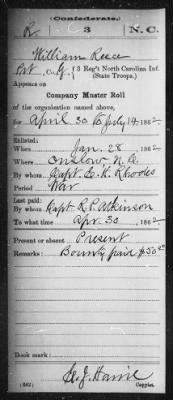 (Confederate.)
R 3 N.C.
William Reece
Pvt, Co. { 3 Reg't North Carolina Inf.
(State Troops.)
Appears on
Company Muster Roll
of the organization named above,
for April 30 to July 14, 1862.
Enlisted:
When Jan. 28, 1862.
Where Onslow N.C.
By whom Capt. E. H. Rhodes
Period War
Last paid:
By whom Capt. R. P. Atkinson
To what time Apr. 30, 1862.
Present or absent Present
Remarks: Bounty paid $50.00
Book mark:
(642)
Copyist.